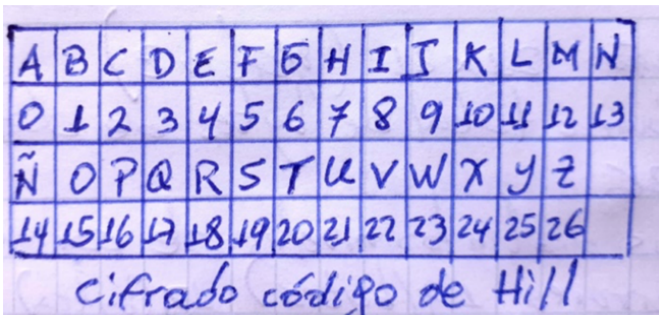 A B C D E F G H I J K L M N
0 1 2 3 4 5 6 7 8 9 10 11 12 13
Ñ O P Q R S T U V W X Y Z
14 15 16 17 18 19 20 21 22 23 24 25 26
Cifrado código de Hill